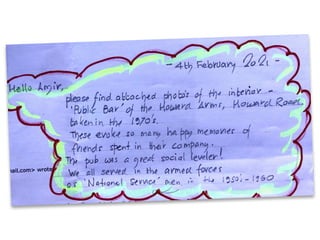 - 4th February 2021 -
Hello Amir,
please find attached photo's of the interior -
'Public Bar' of the Howard Arms, Howard Road,
taken in the 1970's.
These evoke so many happy memories of
friends spent in their company.
The pub was a great social leveler!
We all served in the armed forces
as 'National Service' men in the 1950's - 1960
ail.com> wrote